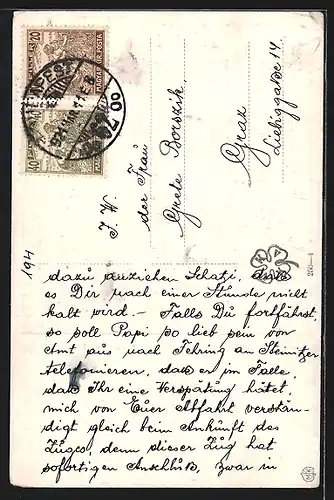 MAGYAR POSTA
20
40
BUDAPEST
I. W.
der Frau
Grete Borszik
Graz
Liebiggasse 14
194
250—4
dazu anziehen Schatzi, dass
es Dir nach einer Stunde nicht
kalt wird. – Falls Du fortfährst,
so soll Papi so lieb sein von
Amt aus nach Fehring an Steinitzer
telefonieren, dass er im Falle
dass Ihr eine Verspätung hätet,
mich von Euer Abfahrt verstän-
digt gleich beim Ankunft des
Zuges, denn dieser Zug hat
sofortigen Anschluß, zwar in